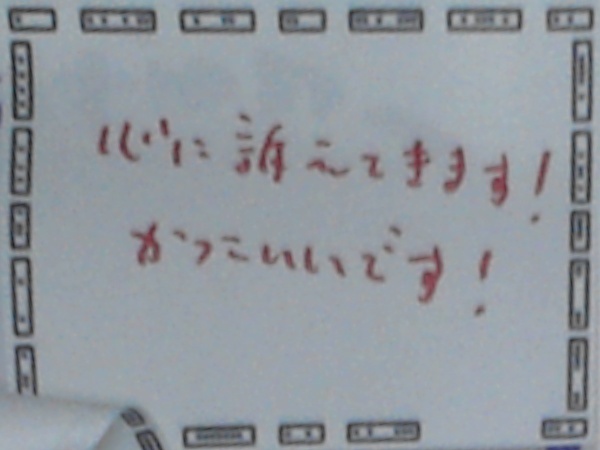 心に訴えてきます!
かっこいいです!